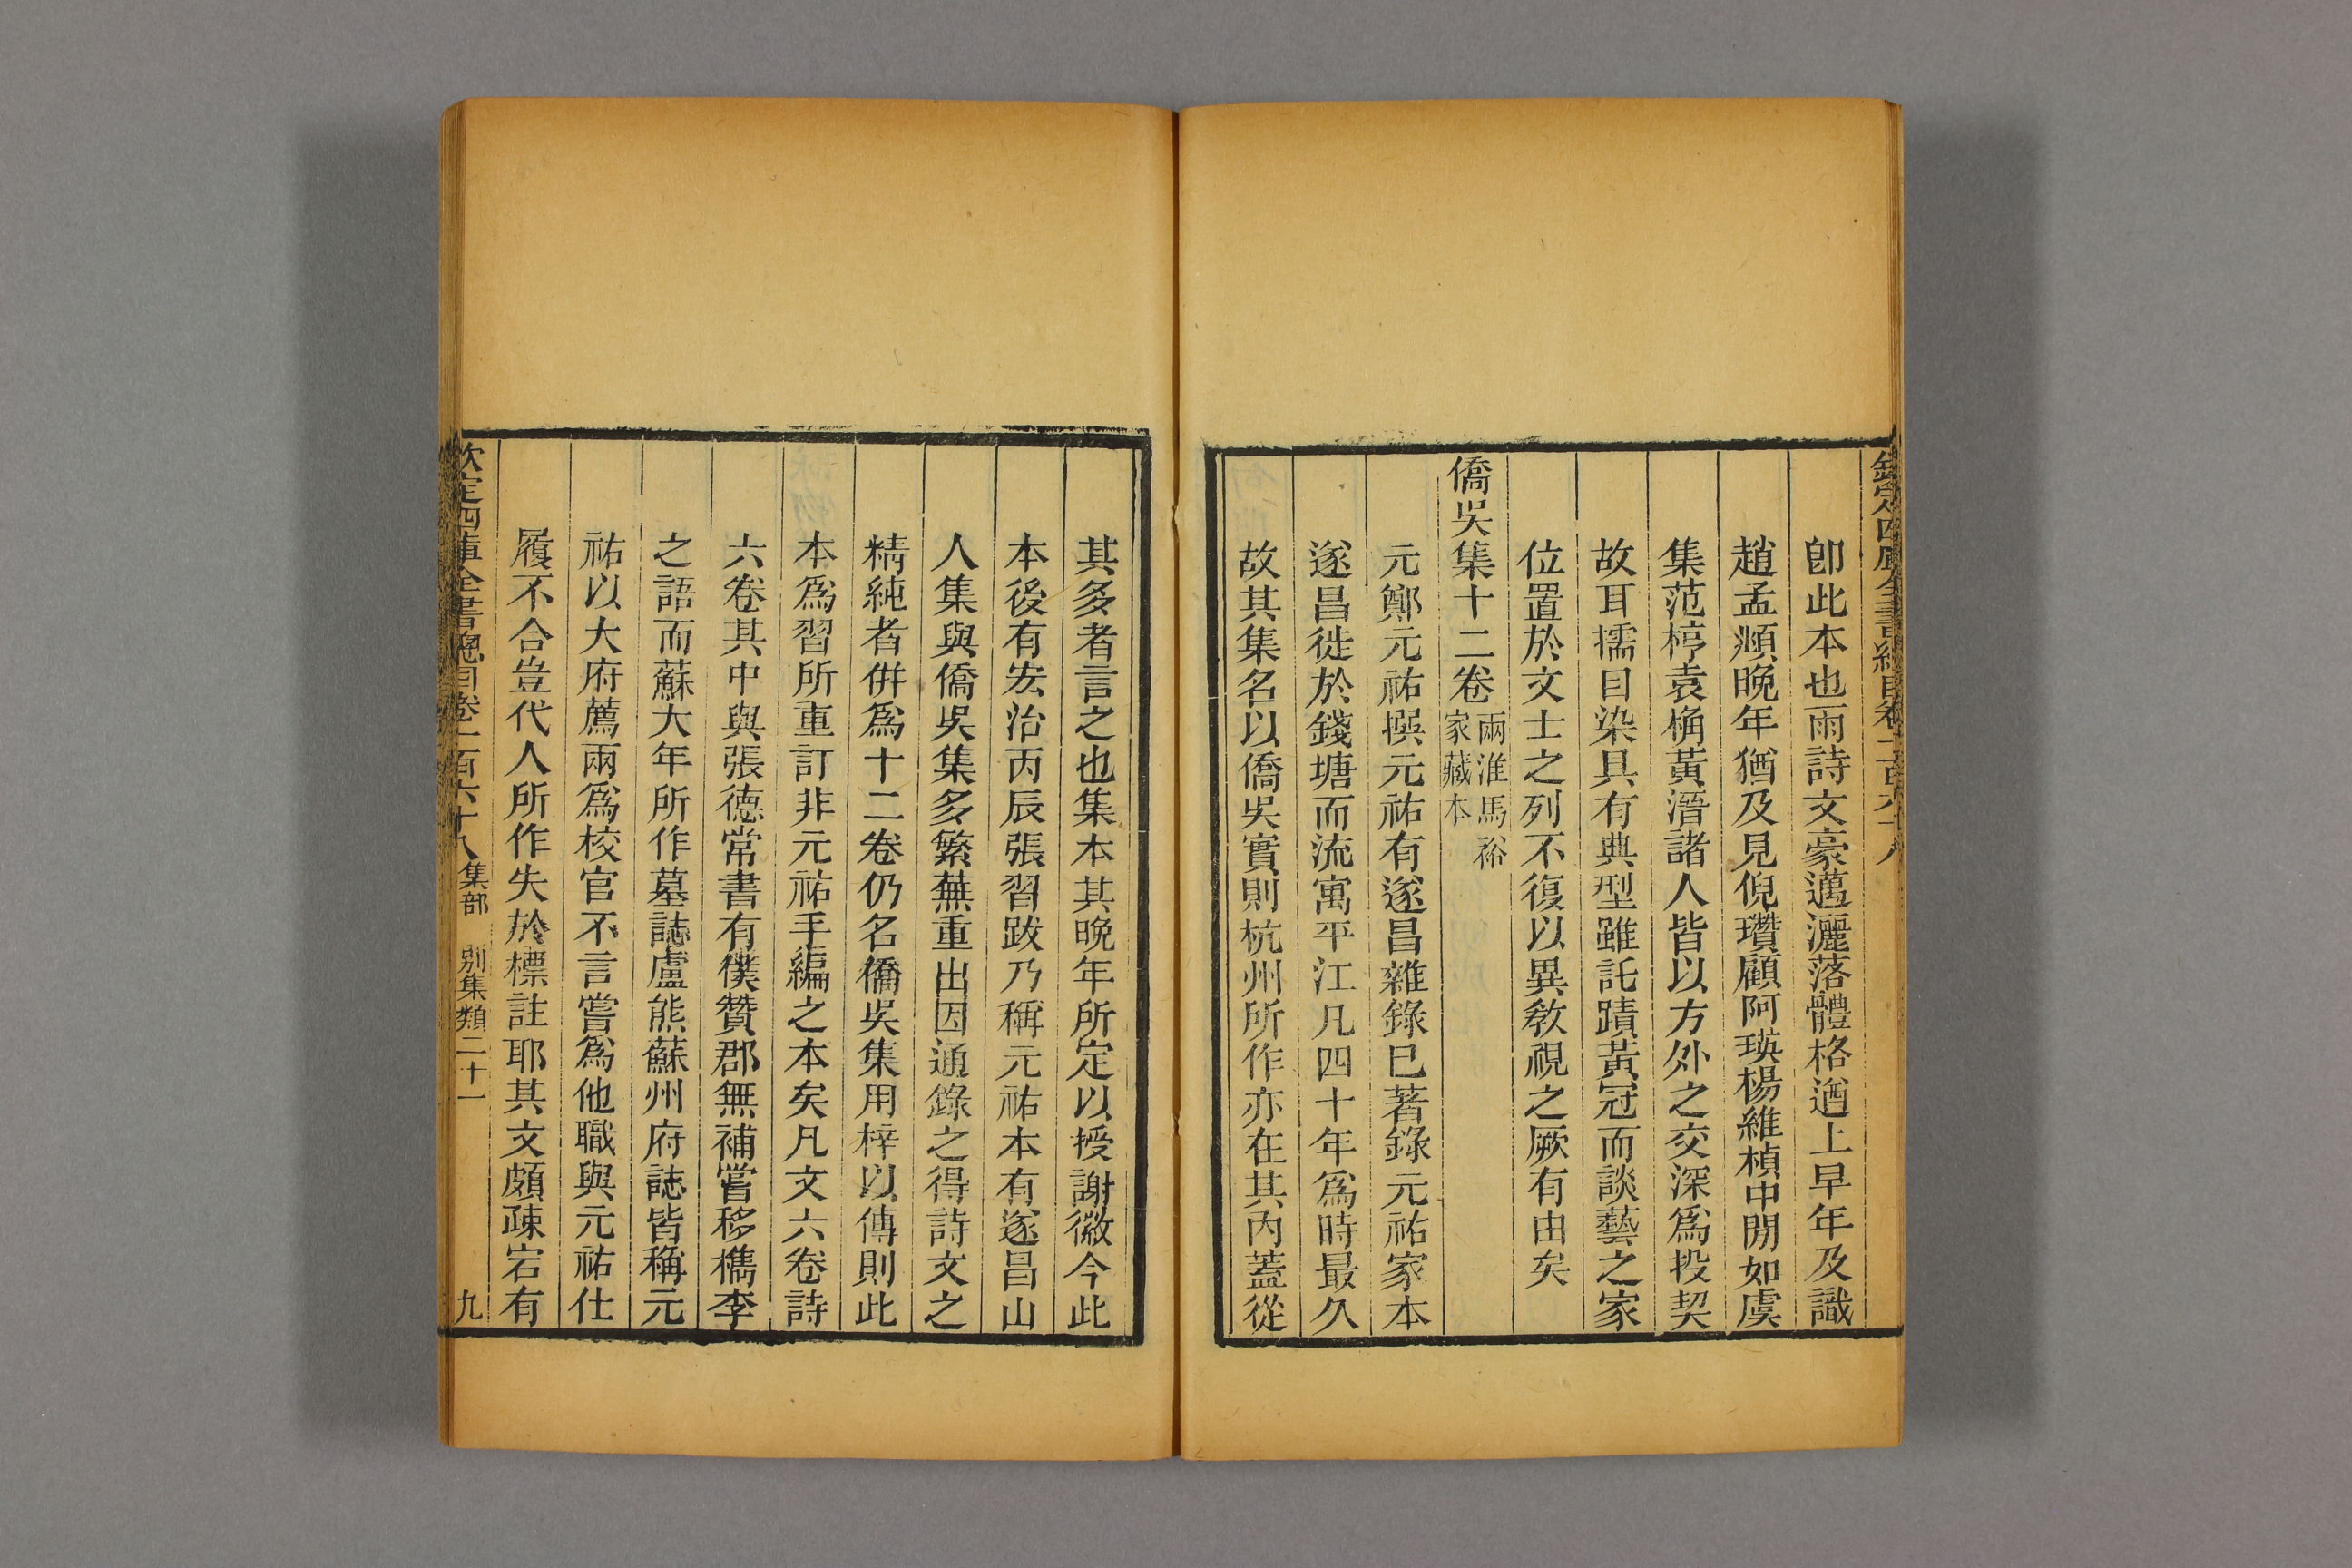 卽此本也雨詩文豪邁灑落體格遒上早年及識
趙孟頫晚年猶及見倪瓚顧阿瑛楊維楨中閒如虞
集范梈袁桷黃溍諸人皆以方外之交深爲投契
故耳擩目染具有典型雖託蹟黃冠而談藝之家
位置於文士之列不復以異敎視之厥有由矣
僑吳集十二卷
兩淮馬裕
家藏本
元鄭元祐撰元祐有遂昌雜錄已著錄元祐家本
遂昌徙於錢塘而流寓平江凡四十年爲時最久
故其集名以僑吳實則杭州所作亦在其內蓋從
其多者言之也集本其晚年所定以授謝徽今此
本後有宏治丙辰張習跋乃稱元祐本有遂昌山
人集與僑吳集多繁蕪重出因通錄之得詩文之
精純者倂爲十二卷仍名僑吳集用梓以傳則此
本爲習所重訂非元祐手編之本矣凡文六卷詩
六卷其中與張德常書有僕贊郡無補嘗移檇李
之語而蘇大年所作墓誌盧熊蘇州府誌皆稱元
祐以大府薦兩爲校官不言嘗爲他職與元祐仕
履不合豈代人所作失於標註耶其文頗疎宕有
欽定四庫全書總目卷一百六十八 集部 別集類二十一 九